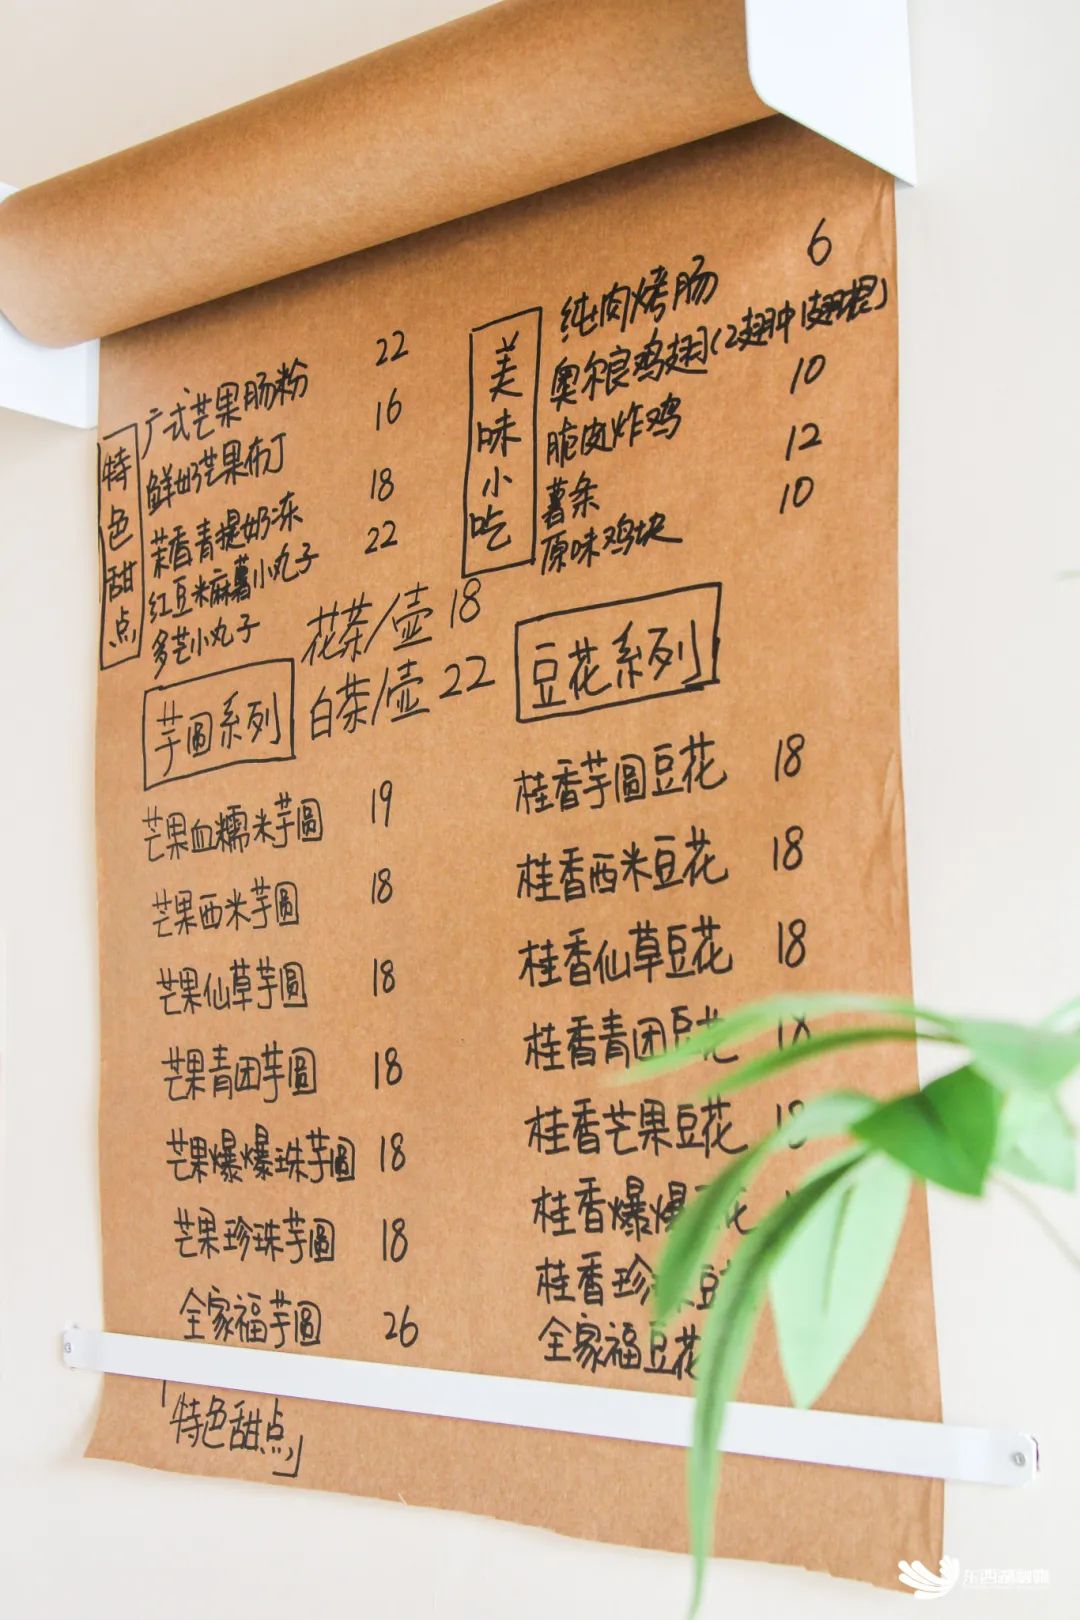 特色甜点
广式芒果肠粉 22
鲜奶芒果布丁 16
茉香青提奶冻 18
红豆米麻薯小丸子 22
多芒小丸子
美味小吃
纯肉烤肠 6
奥尔良鸡翅(2翅中1翅根)
脆皮炸鸡 10
薯条 12
原味鸡块 10
花茶/壶 18
白茶/壶 22
芋圆系列
芒果血糯米芋圆 19
芒果西米芋圆 18
芒果仙草芋圆 18
芒果青团芋圆 18
芒果爆爆珠芋圆 18
芒果珍珠芋圆 18
全家福芋圆 26
豆花系列
桂香芋圆豆花 18
桂香西米豆花 18
桂香仙草豆花 18
桂香青团豆花 18
桂香芒果豆花 18
桂香爆爆豆花
桂香珍珠豆
全家福豆花
「特色甜点」